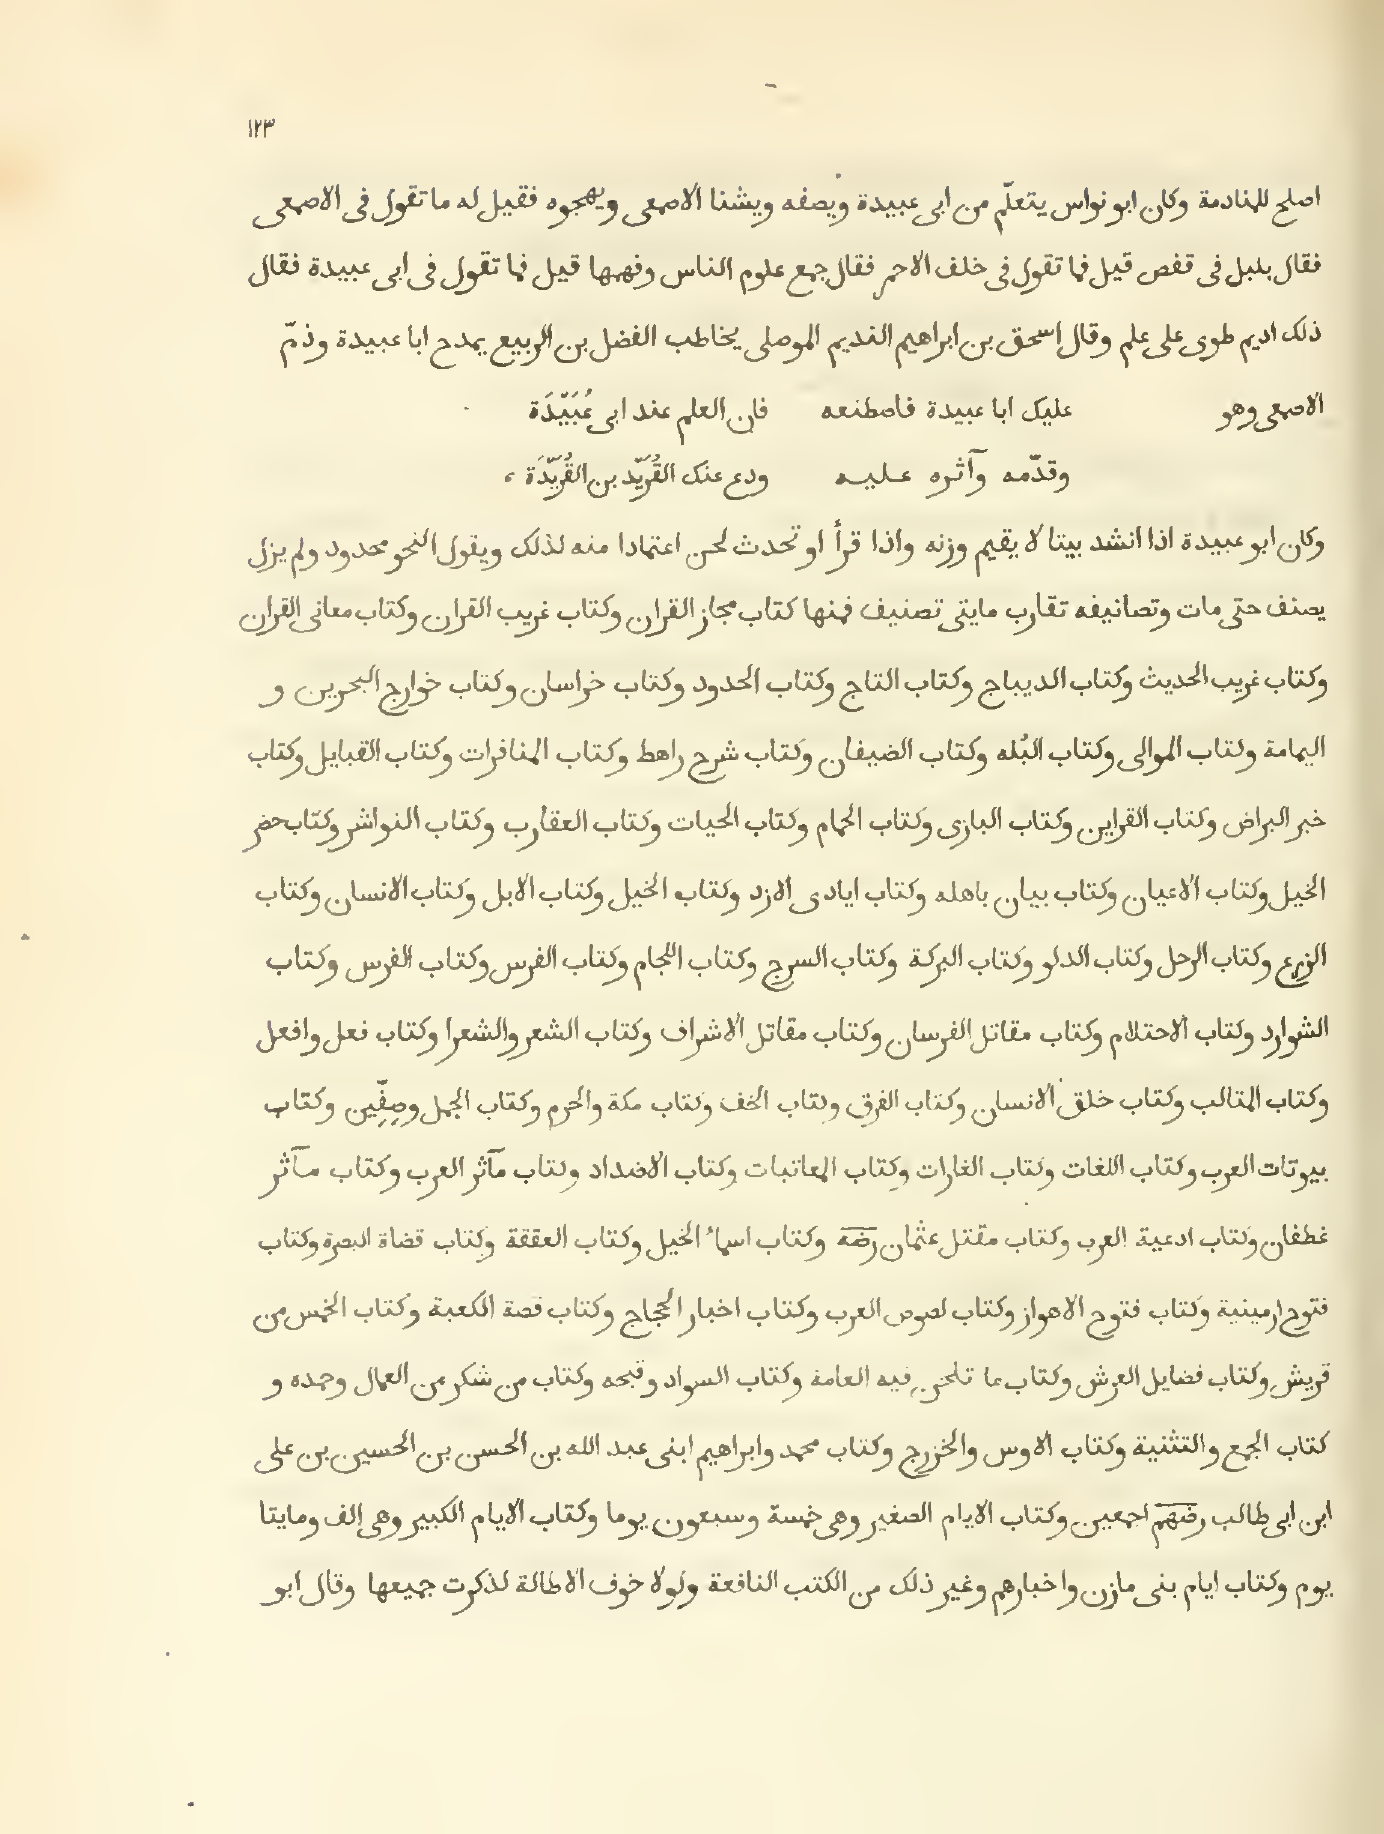 ١٢٣
اصلح للمنادمة وكان ابو نواس يتعلّم من ابى عبيدة ويصفه ويشنا الاصمعى ويهجوه فقيل له ما تقول فى الاصمعى
فقال بلبل فى قفص قيل فما تقول فى خلف الاحمر فقال جمع علوم الناس وفهمها قيل فما تقول فى ابى عبيدة فقال
ذلك اديم طوى على علم وقال إسحق بن ابراهيم النديم الموصلى يخاطب الفضل بن الربيع يمدح ابا عبيدة وذمّ
الاصمعى وهو عليك ابا عبيدة فاصطنعه فان العلم عند ابى عُبَيّدَة
وقدّمه وآثره عليه ودع عنك القُرَيّد بن القُرَيّدَة
وكان ابو عبيدة اذا انشد بيتا لا يقيم وزنه واذا قرأ او تحدث لحن اعتمادا منه لذلك ويقول النحو محدود ولم يزل
يصنف حتى مات وتصانيفه تقارب مايتى تصنيف فمنها كتاب مجاز القران وكتاب غريب القران وكتاب معانى القران
وكتاب غريب الحديث وكتاب الديباج وكتاب التاج وكتاب الحدود وكتاب خراسان وكتاب خوارج البحرين و
اليمامة وكتاب الموالى وكتاب البُله وكتاب الضيفان وكتاب شرح راهط وكتاب المنافرات وكتاب القبايل وكتاب
خبر البراض وكتاب القراين وكتاب البازى وكتاب الحمام وكتاب الحيات وكتاب العقارب وكتاب النواشر وكتاب حضر
الخيل وكتاب الاعيان وكتاب بيان باهله وكتاب ايادى الازد وكتاب الخيل وكتاب الابل وكتاب الانسان وكتاب
الزرع وكتاب الرحل وكتاب الدلو وكتاب البركة وكتاب السرج وكتاب اللجام وكتاب الفرس وكتاب الفرس وكتاب
الشوارد وكتاب الاحتلام وكتاب مقاتل الفرسان وكتاب مقاتل الاشراف وكتاب الشعر والشعرا وكتاب فعل وافعل
وكتاب المثالب وكتاب خلق الانسان وكتاب الفرق وكتاب الخف وكتاب مكة والحرم وكتاب الجمل وصِفّين وكتاب
بيوتات العرب وكتاب اللغات وكتاب الغارات وكتاب المعاتبات وكتاب الاضداد وكتاب مآثر العرب وكتاب مآثر
غطفان وكتاب ادعية العرب وكتاب مقتل عثمان رضه وكتاب اسماء الخيل وكتاب العققة وكتاب قضاة البصرة وكتاب
فتوح ارمينية وكتاب فتوح الاهواز وكتاب لصوص العرب وكتاب اخبار الحجاج وكتاب قصة الكعبة وكتاب الخمس من
قريش وكتاب فضايل العرش وكتاب ما تلحن فيه العامة وكتاب السواد وفتحه وكتاب من شكر من العمال وحمده و
كتاب الجمع والتثنية وكتاب الاوس والخزرج وكتاب محمد وابراهيم ابنى عبد الله بن الحسن بن الحسين بن على
ابن ابى طالب رضهم اجمعين وكتاب الايام الصغير وهى خمسة وسبعون يوما وكتاب الايام الكبير وهى إلف ومايتا
يوم وكتاب ايام بنى مازن واخبارهم وغير ذلك من الكتب النافعة ولولا خوف الاطالة لذكرت جميعها وقال ابو